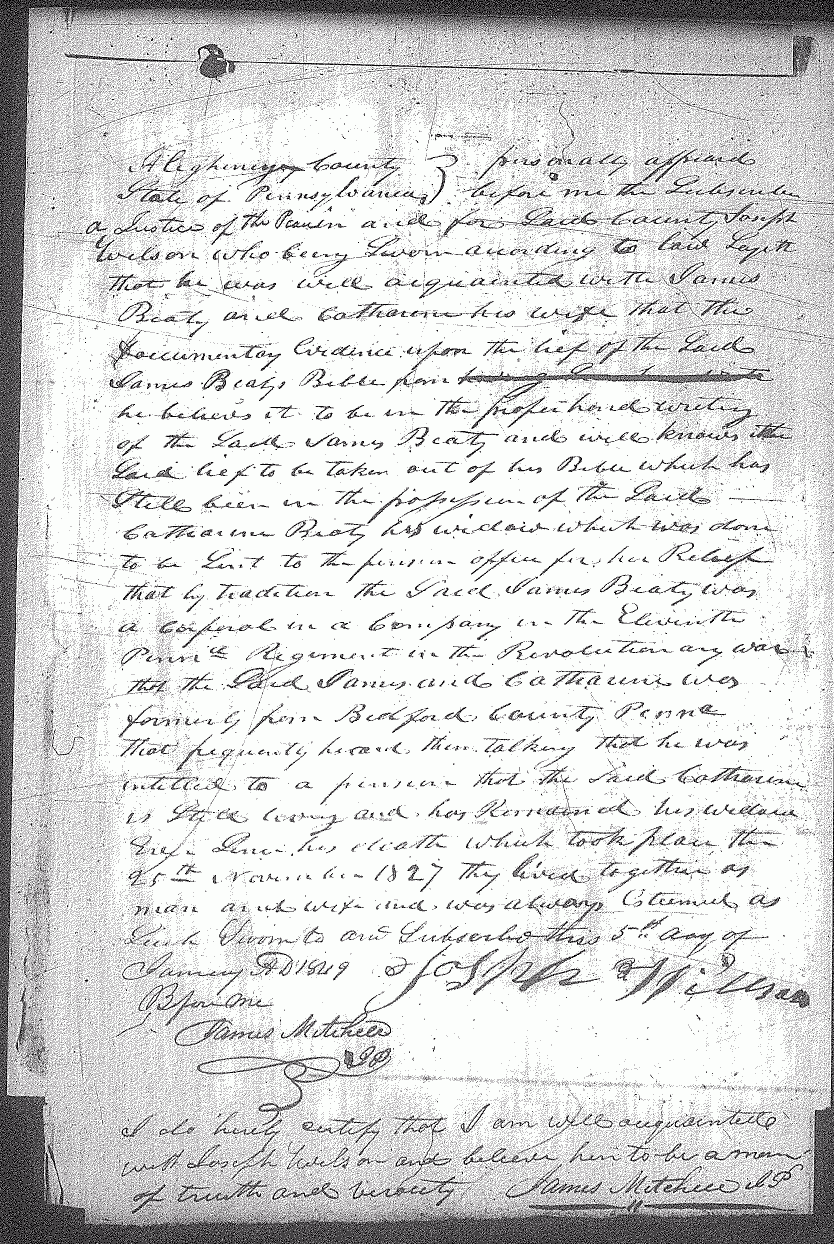 Allegheney County } personally appeard
State of Pennsylvania } before me the Subscriber
a Justice of the Peace in and for Said County Joseph
Wilson who being Sworn acording to law Sayth
that he was well acquainted with James
Beaty and Catharine his wife that the
Documentary Evidence upon the lief of the Said
James Beatys Bible from
he believes it to be in the proper hand writing
of the Said James Beaty and well knows the
Said lief to be taken out of his Bible which has
Still been in the possession of the Said
Catharine Beaty his widow which was done
to be Sent to the pension office for her Relief
that by tradition the Said James Beaty was
a Corporal in a Company in the Elevinth
Penna Regiment in the Revolution ary war
that the Said James and Catharine was
formerly from Bedford County Penna
that frequently heard them talking that he was
intitled to a pension that the Said Catharine
is Still living and has Remained his widow
Ever Since his death which took place the
25th November 1827 they lived together as
man and wife and was always Esteemed as
Such Sworn to and Subscribd this 5th day of
January AD 1849 Joseph Wilson
Before me
James Mitchell
JP
I do hereby certify that I am well acquainted
with Joseph Wilson and believe him to be a man
of truth and veracity James Mitchell JP